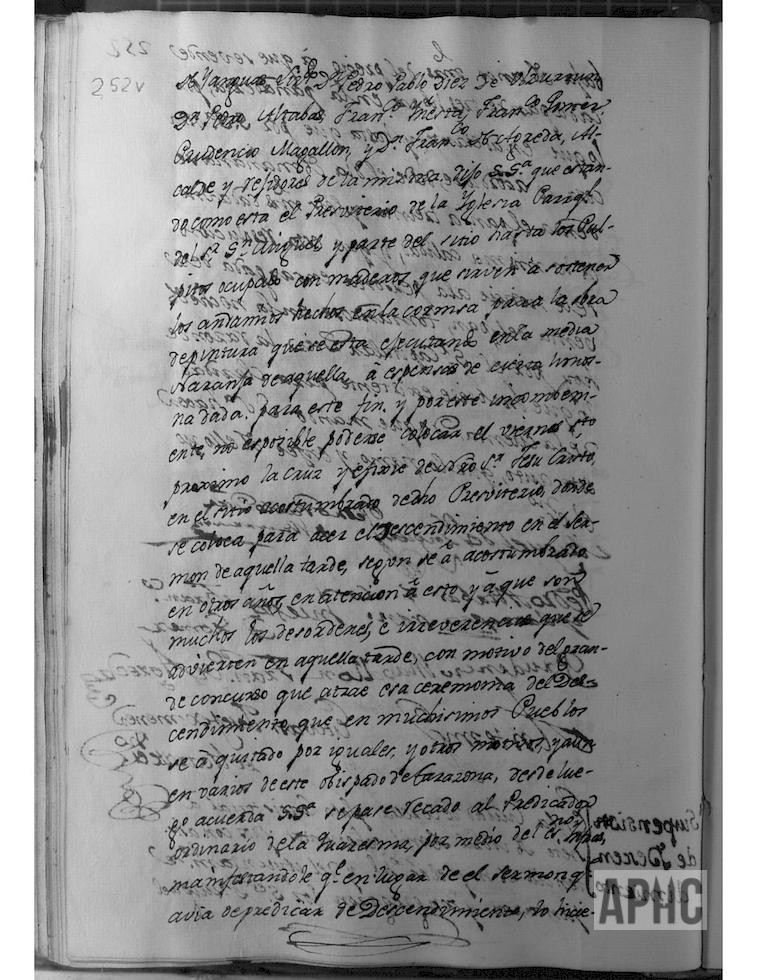 252v
de Yanguas, Sr. Dn. Pedro Pablo Diez de
Dn. Pedro Alabas, Franco. Mesta, Franco. Ferrer
Prudencio Magallon, y Dn. Franco. Artozeda, Al-
calde y rejidores de la misma, Dijo S.Sa. que estan-
do como esta el Presviterio de la Yglesia Parrql.
del Sr. Sn. Miguel y parte del sitio hasta los Pul-
pitos ocupado con maderos, que sirven a sostener
los andamios hechos en la cornisa para la obra
de pintura que se esta ejecutando en la media
Naranja de aquella, á espensas de cierta limos-
na dada para este fin, y por este incombeni-
ente, no es posible poderse colocar el viernes sto.
proximo la cruz y efixie de Ntro Sr. Jesu Christo,
en el sitio acostumbrado de dho Presviterio, donde
se coloca para acer el Descendimiento en el Ser-
mon de aquella tarde, segun se â acostumbrado
en otros años, en atencion â esto y â que son
muchos los desordenes, e irreverencias que se
advierten en aquella tarde, con motivo del gran-
de concurso que atrae esa ceremonia del Des-
cendimiento que en muchisimos Pueblos
se â quitado por iguales, y otros motivos, y aun
en varios de este obispado de Tarazona, desde lue-
go acuerda S.Sa. se pase recado al Predicador
ordinario de la Quaresma, por medio del
manifestandole qe. en lugar de el sermon qe.
avia de predicar de Descendimiento, lo hicie-
APHC